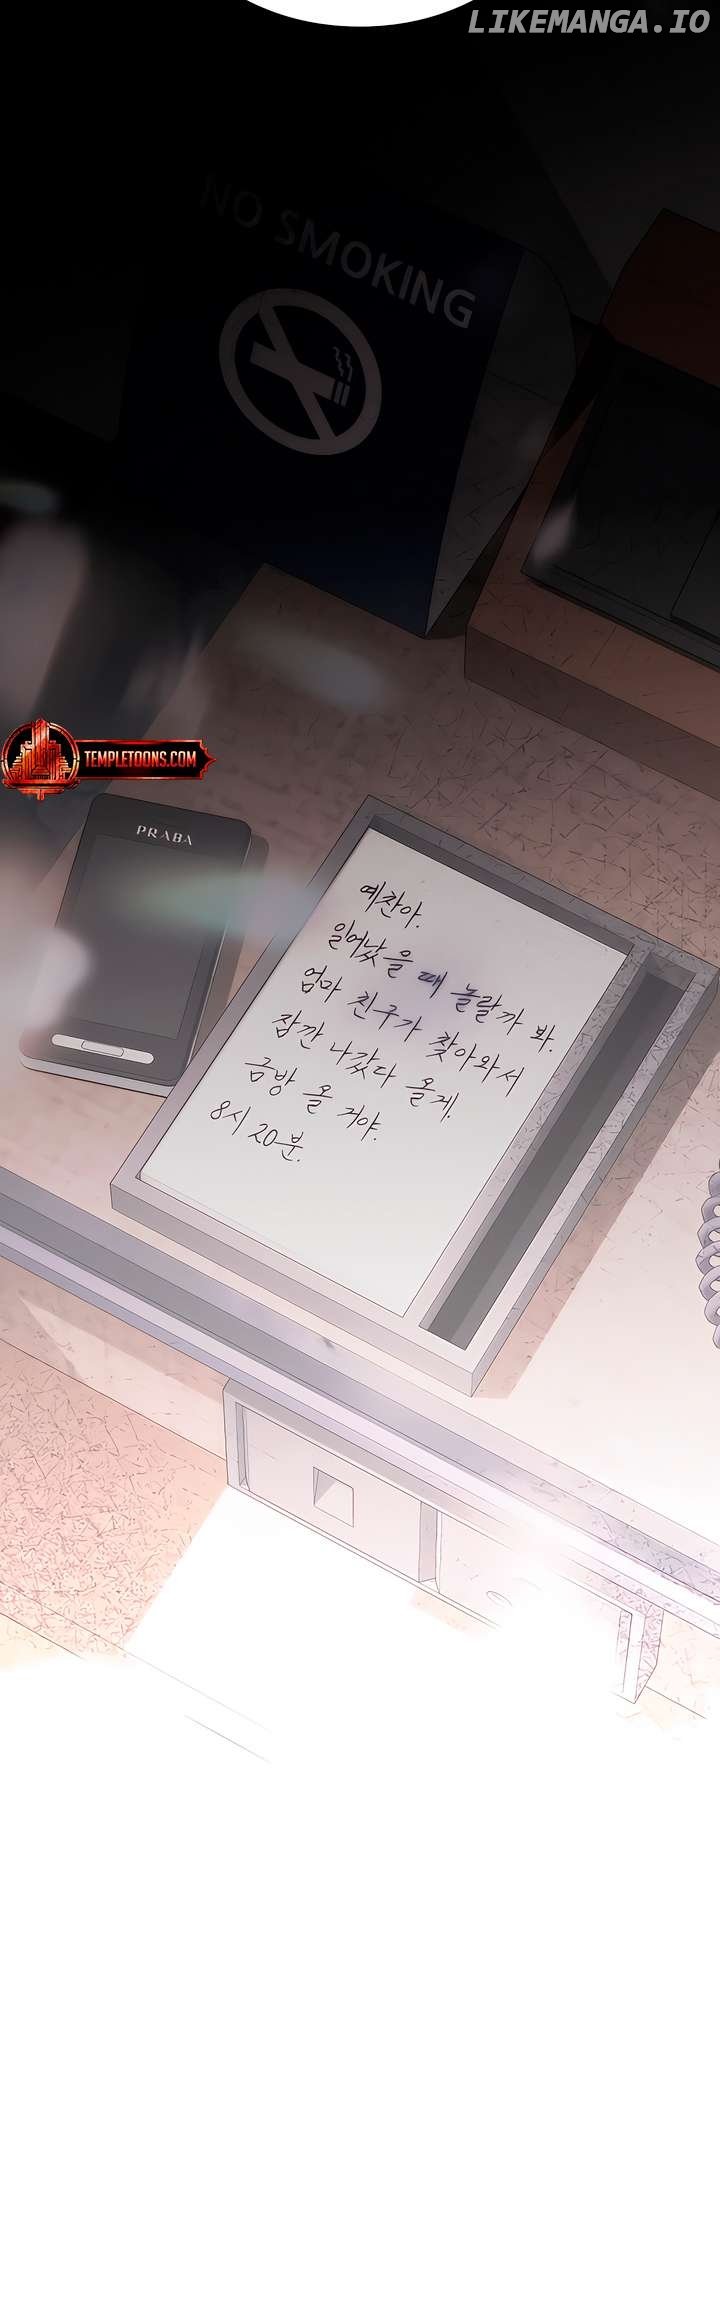 LIKEMANGA.IO
NO SMOKING
TEMPLETOONS.COM
PRABA
예찬아.
일어났을 때 놀랄까 봐.
엄마 친구가 찾아와서
잠깐 나갔다 올게.
금방 올 거야.
8시 20분.